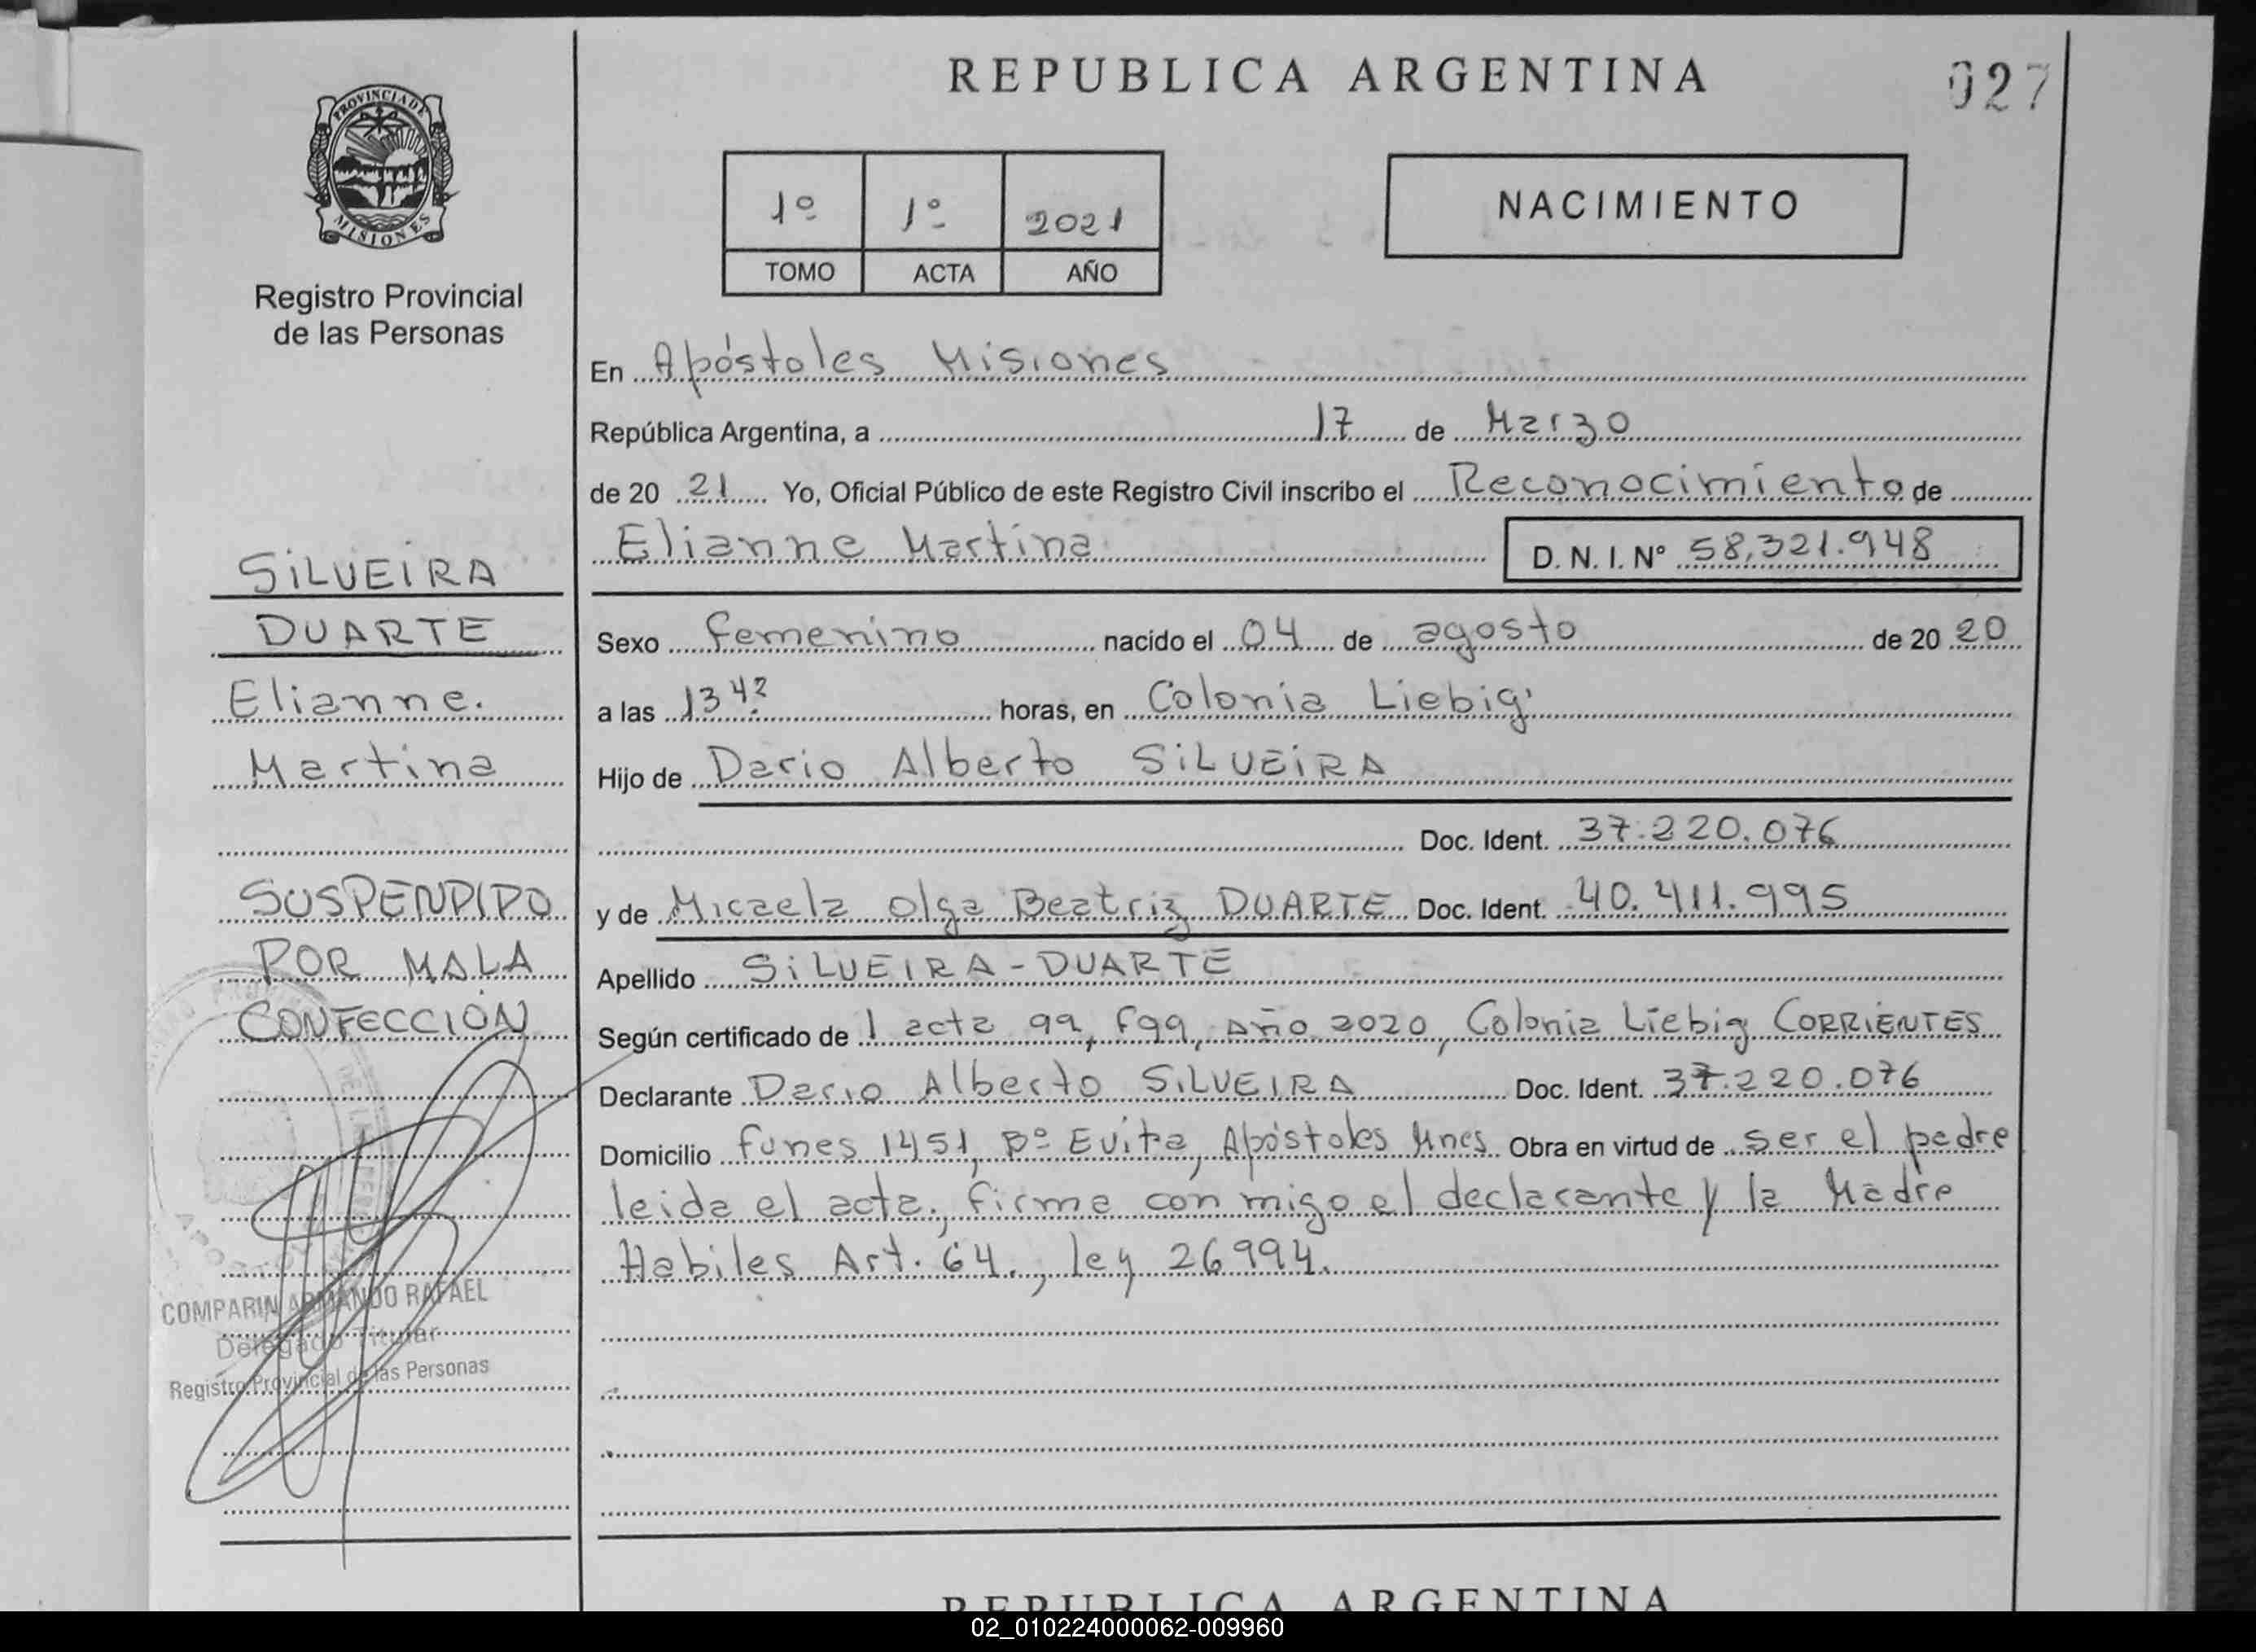 REPUBLICA ARGENTINA
027
PROVINCIA DE
MISIONES
Registro Provincial
de las Personas
1º 1º 2021
TOMO ACTA AÑO
NACIMIENTO
En Apóstoles Misiones
República Argentina, a 17 de Marzo
de 20 21 Yo, Oficial Público de este Registro Civil inscribo el Reconocimiento de
Elianne Martina D. N. I. Nº 58,321.948
Sexo femenino nacido el 04 de agosto de 20 20
a las 13 42 horas, en Colonia Liebig
Hijo de Dario Alberto SiLVEiRA
Doc. Ident. 37.220.076
y de Micaela Olga Beatriz DUARTE Doc. Ident. 40.411.995
Apellido SiLVEIRA-DUARTE
Según certificado de 1 acta 99, F99, Año 2020, Colonia Liebig CORRiENTES
Declarante Dario Alberto SiLVEIRA Doc. Ident. 37.220.076
Domicilio funes 1451, Bº Evita, Apóstoles Mnes Obra en virtud de ser el padre
leida el acta, firma con migo el declarante y la Madre
Habiles Art. 64., ley 26994.
SiLVEIRA
DUARTE
Elianne.
Martina
SUSPENDIDO
POR MALA
CONFECCIÓN
COMPARIN ARMANDO RAFAEL
Delegado Titular
Registro Provincial de las Personas
REPUBLICA ARGENTINA
02_010224000062-009960